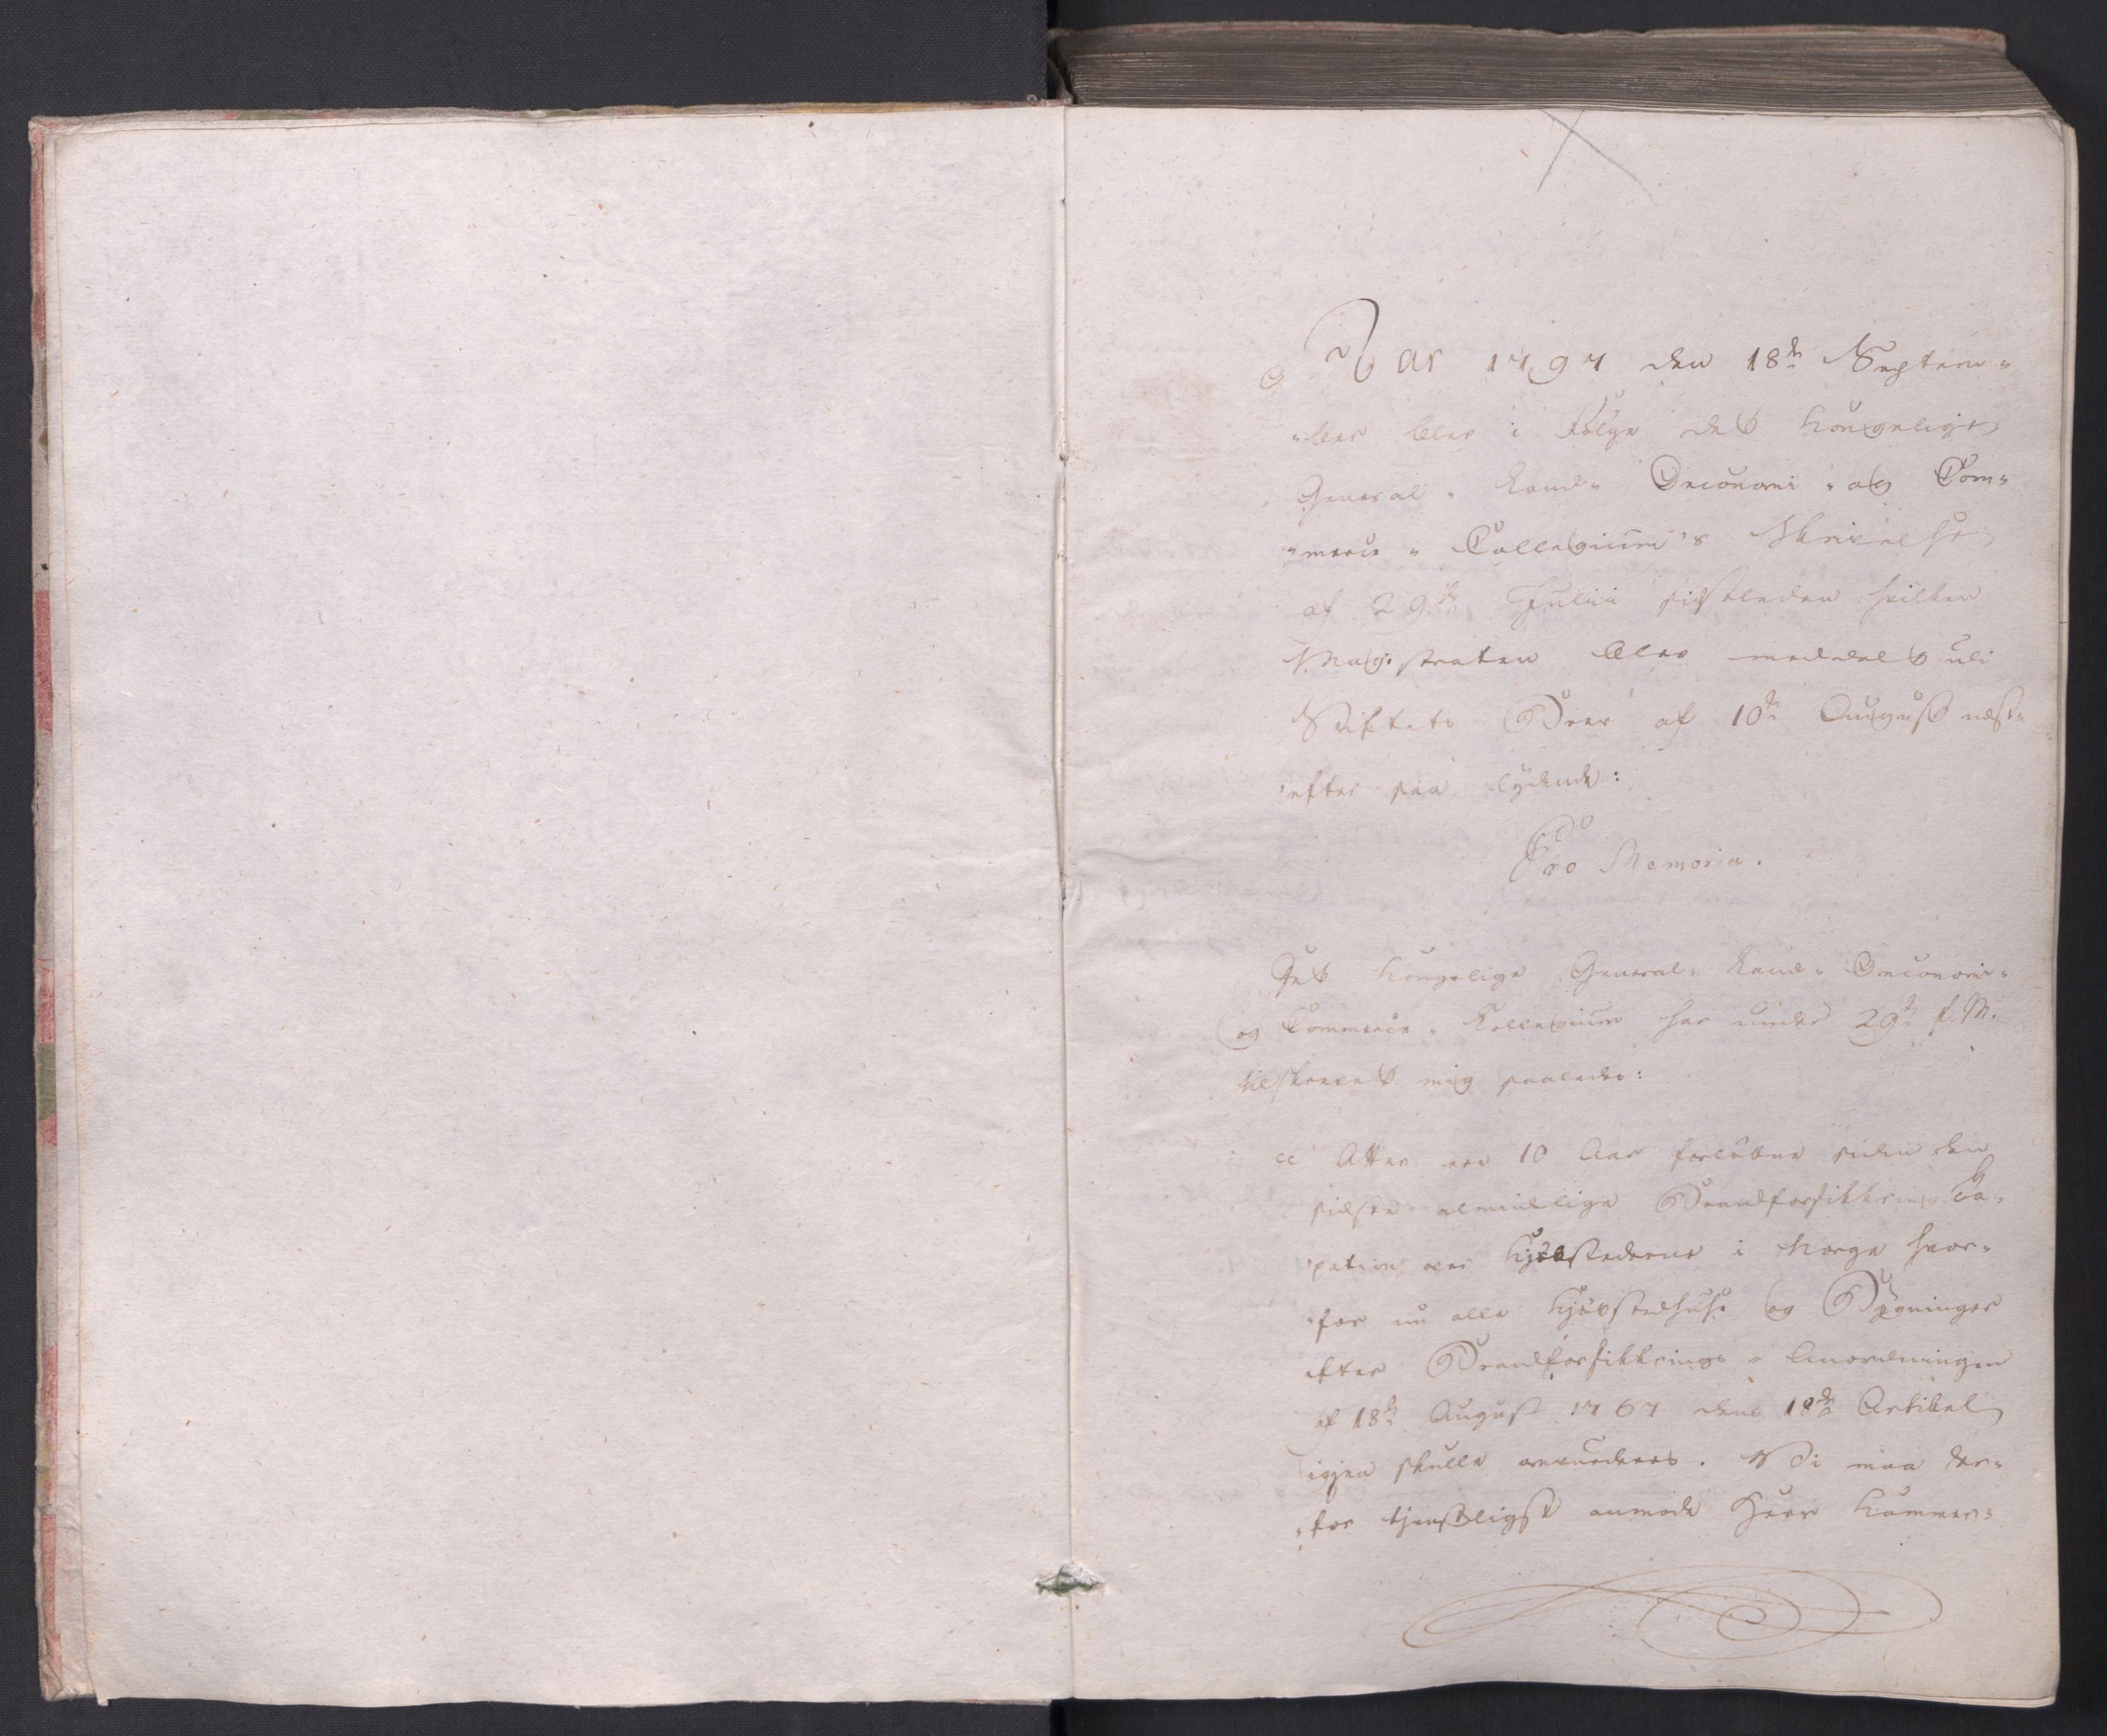 Aar 1797 den 18de Septem-
-ber blev i Følge det Kongelige
General- Land- Oeconomi- og Com-
-merce- Collegium's Skrivelse
af 29de Julii sidstleden hvilken
Magistraten blev meddelt udi
Stiftets Brev af 10de August næst-
-efter saa lydende:
Pro Memoria.
Det Kongelige General- Land- Oeconomie-
og Commerce- Collegium har under 29de f. M.
tilskrevet mig saaledes:
" Atter ere 10 Aar forløbne siden den
sidste almindelige Brandforsikkrings Ta-
-xation over Kjøbstæderne i Norge hvor-
-for nu alle Kjøbstedhuse og Bygninger
efter Brandforsikkrings- Anordningen
af 18de August 1767 dens 18de Artikel
igjen skulle omvurderes. Vi maa der-
-for tjenstligst anmode Herr Kammer-